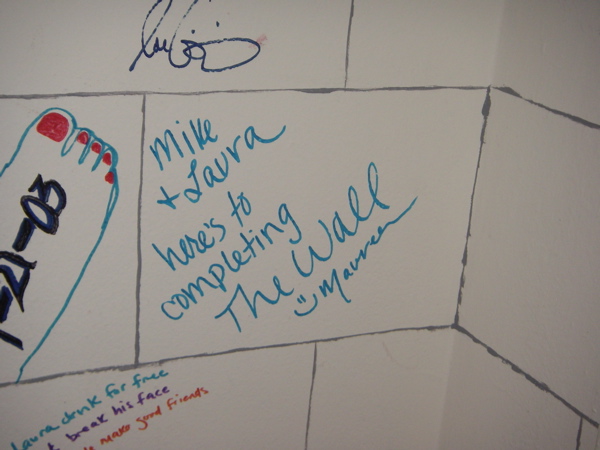 1-21-03
Mike
+ Laura
here's to
completing
The Wall
Maureen
Laura drink for free
break his face
make good friends